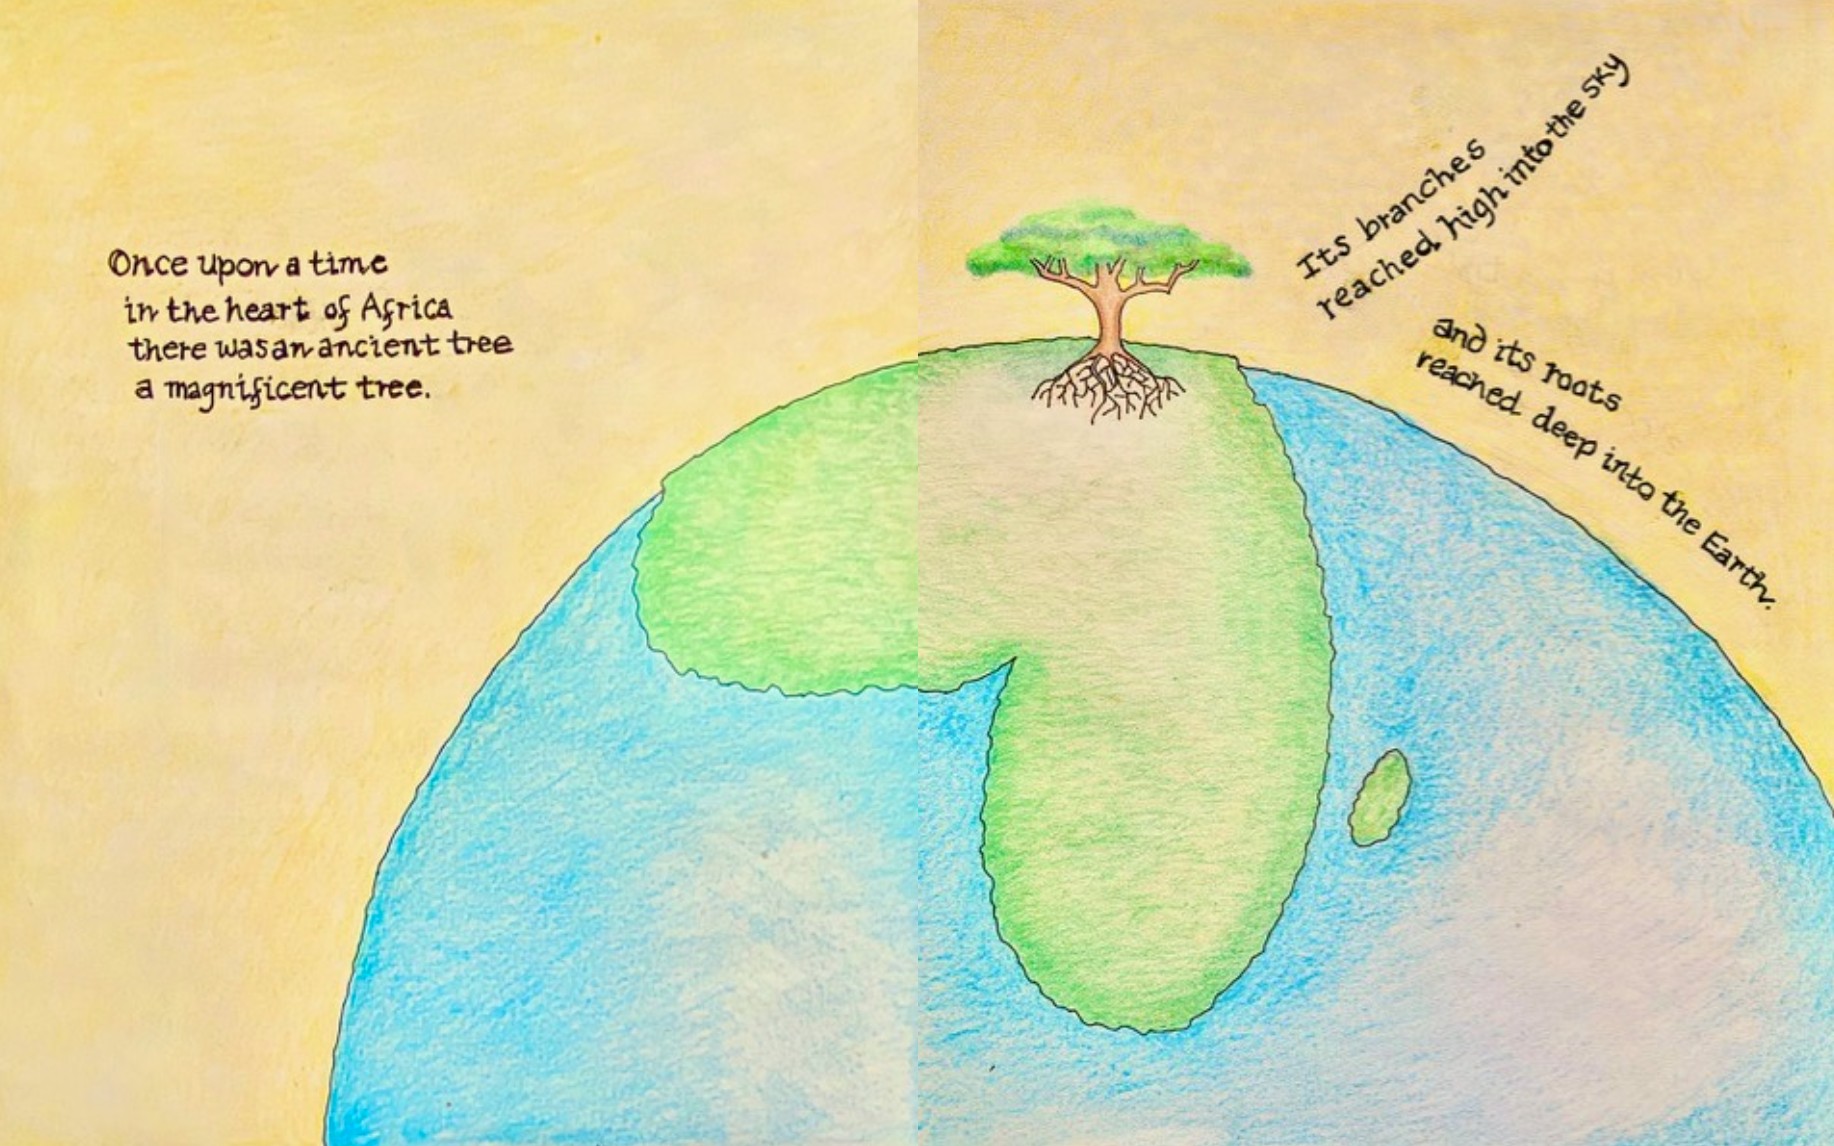 Once upon a time
in the heart of Africa
there was an ancient tree
a magnificent tree.
Its branches
reached high into the sky
and its roots
reached deep into the Earth.